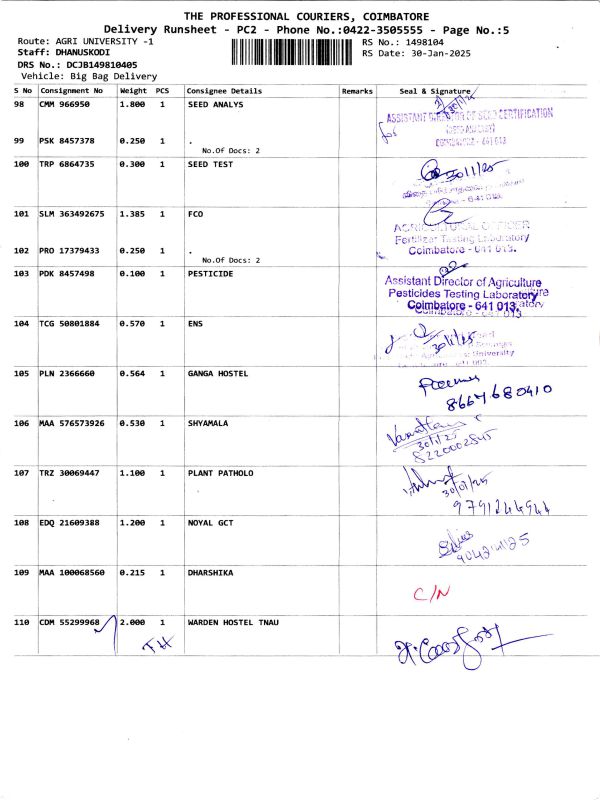 THE PROFESSIONAL COURIERS, COIMBATORE
Delivery Runsheet - PC2 - Phone No.:0422-3505555 - Page No.:5
Route: AGRI UNIVERSITY -1
RS No.: 1498104
Staff: DHANUSKODI
RS Date: 30-Jan-2025
DRS No.: DCJB149810405
Vehicle: Big Bag Delivery
S No Consignment No Weight PCS Consignee Details Remarks Seal & Signature
98 CMM 966950 1.800 1 SEED ANALYS
30/1/25
ASSISTANT DIRECTOR OF SEED CERTIFICATION
99 PSK 8457378 0.250 1 .
COIMBATORE - 641 013
No.Of Docs: 2
100 TRP 6864735 0.300 1 SEED TEST
30/1/25
- 641 013.
101 SLM 363492675 1.385 1 FCO
AGRICULTURAL OFFICER
Fertilizer Testing Laboratory
102 PRO 17379433 0.250 1 .
Coimbatore - 641 013.
No.Of Docs: 2
103 PDK 8457498 0.100 1 PESTICIDE
Assistant Director of Agriculture
Pesticides Testing Laboratory
Coimbatore - 641 013.
104 TCG 50801884 0.570 1 ENS
30/1/25
University
105 PLN 2366660 0.564 1 GANGA HOSTEL
8667680410
106 MAA 576573926 0.530 1 SHYAMALA
30/1/25
8220002845
107 TRZ 30069447 1.100 1 PLANT PATHOLO
30/01/25
9791244944
108 EDQ 21609388 1.200 1 NOYAL GCT
109 MAA 100068560 0.215 1 DHARSHIKA
C/N
110 CDM 55299968 2.000 1 WARDEN HOSTEL TNAU
TH